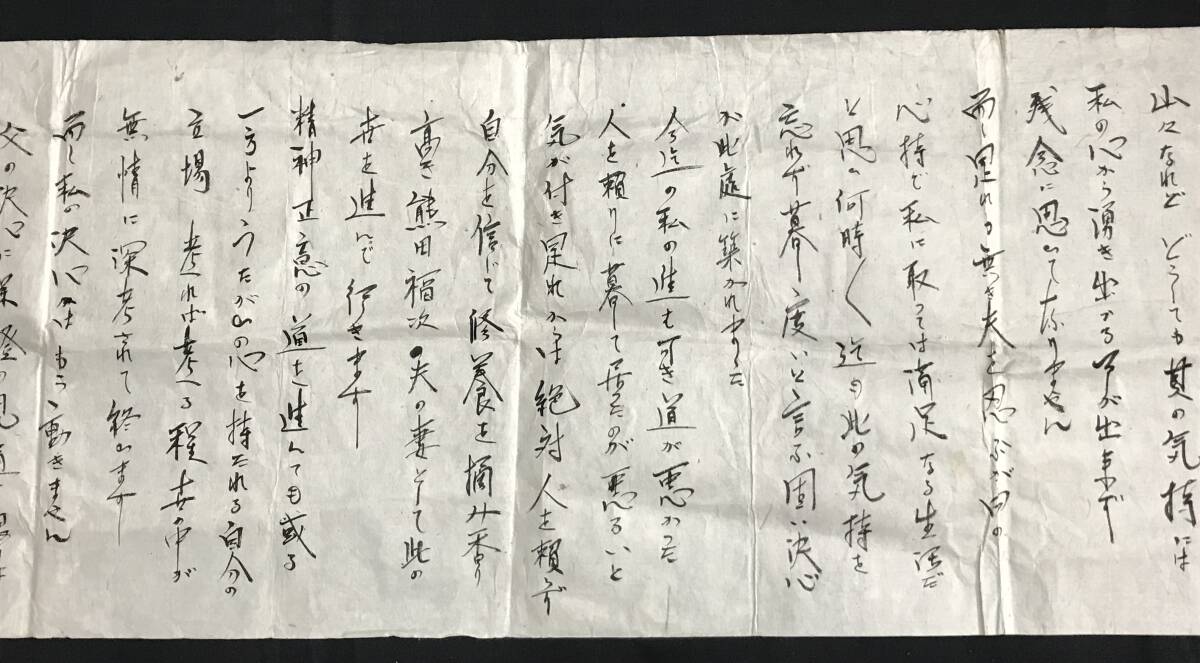 山々なれど どうしても其の気持には
私の心から湧き出づる事が出来ず
残念に思って居りません
而し是れの無き夫を思ふが田の
心持で私に取っては満足なる生活だ
と思ひ何時〱迄も此の気持を
忘れず暮し度いと言ふ固い決心
が此處に築かれました
今迄の私の進む可き道が悪かった
人を頼りに暮して居たのが悪るいと
気が付き是れからは絶対人を頼らず
自分を信じて修養を摘み
高き熊田福次 夫の妻として此の
世を進んで行きます
精神正しい道を進んでも或る
一方よりうたがひの心を持たれる自分の
立場 考へれば考へる程世の中が
無情に深考されて終ひます
而し私の決心はもう動きません
父の決心に